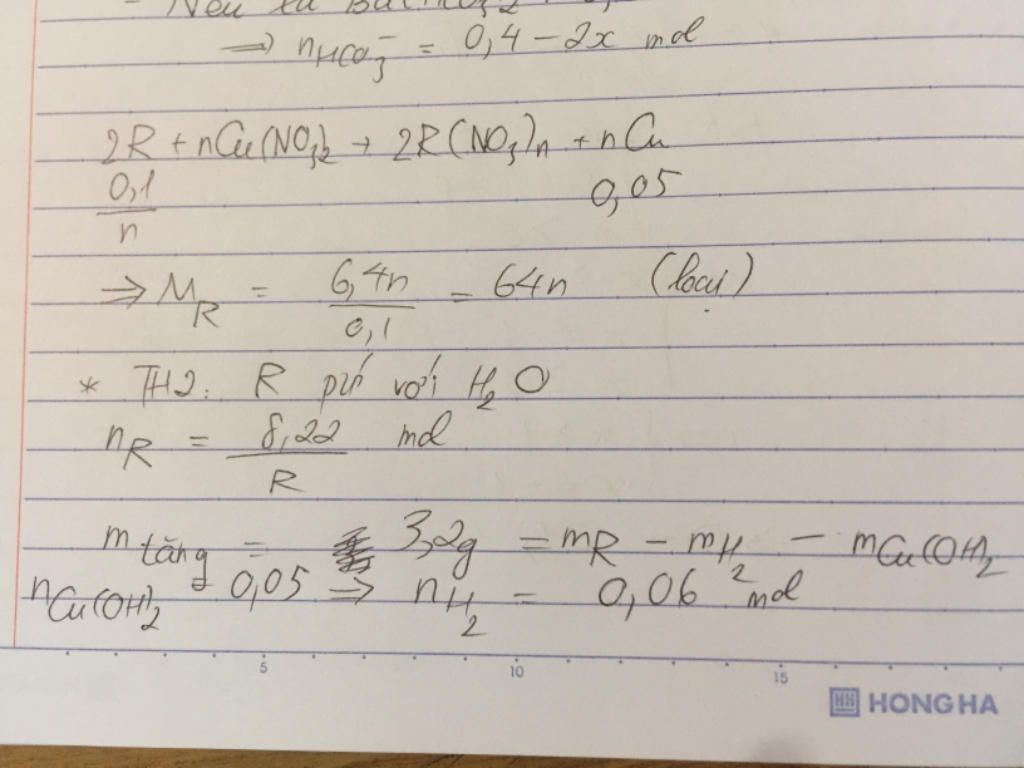 ⇒ nHCO₃⁻ = 0,4 - 2x mol
2R + nCu(NO₃)₂ → 2R(NO₃)n + nCu
0,1/n 0,05
⇒ MR = 6,4n/0,1 = 64n (loại)
* TH2: R pứ với H₂O
nR = 8,22/R mol
m tăng = 3,2g = mR - mH₂ - mCu(OH)₂
nCu(OH)₂ 0,05 ⇒ nH₂ = 0,06 mol
5 10 15
HH HONG HA